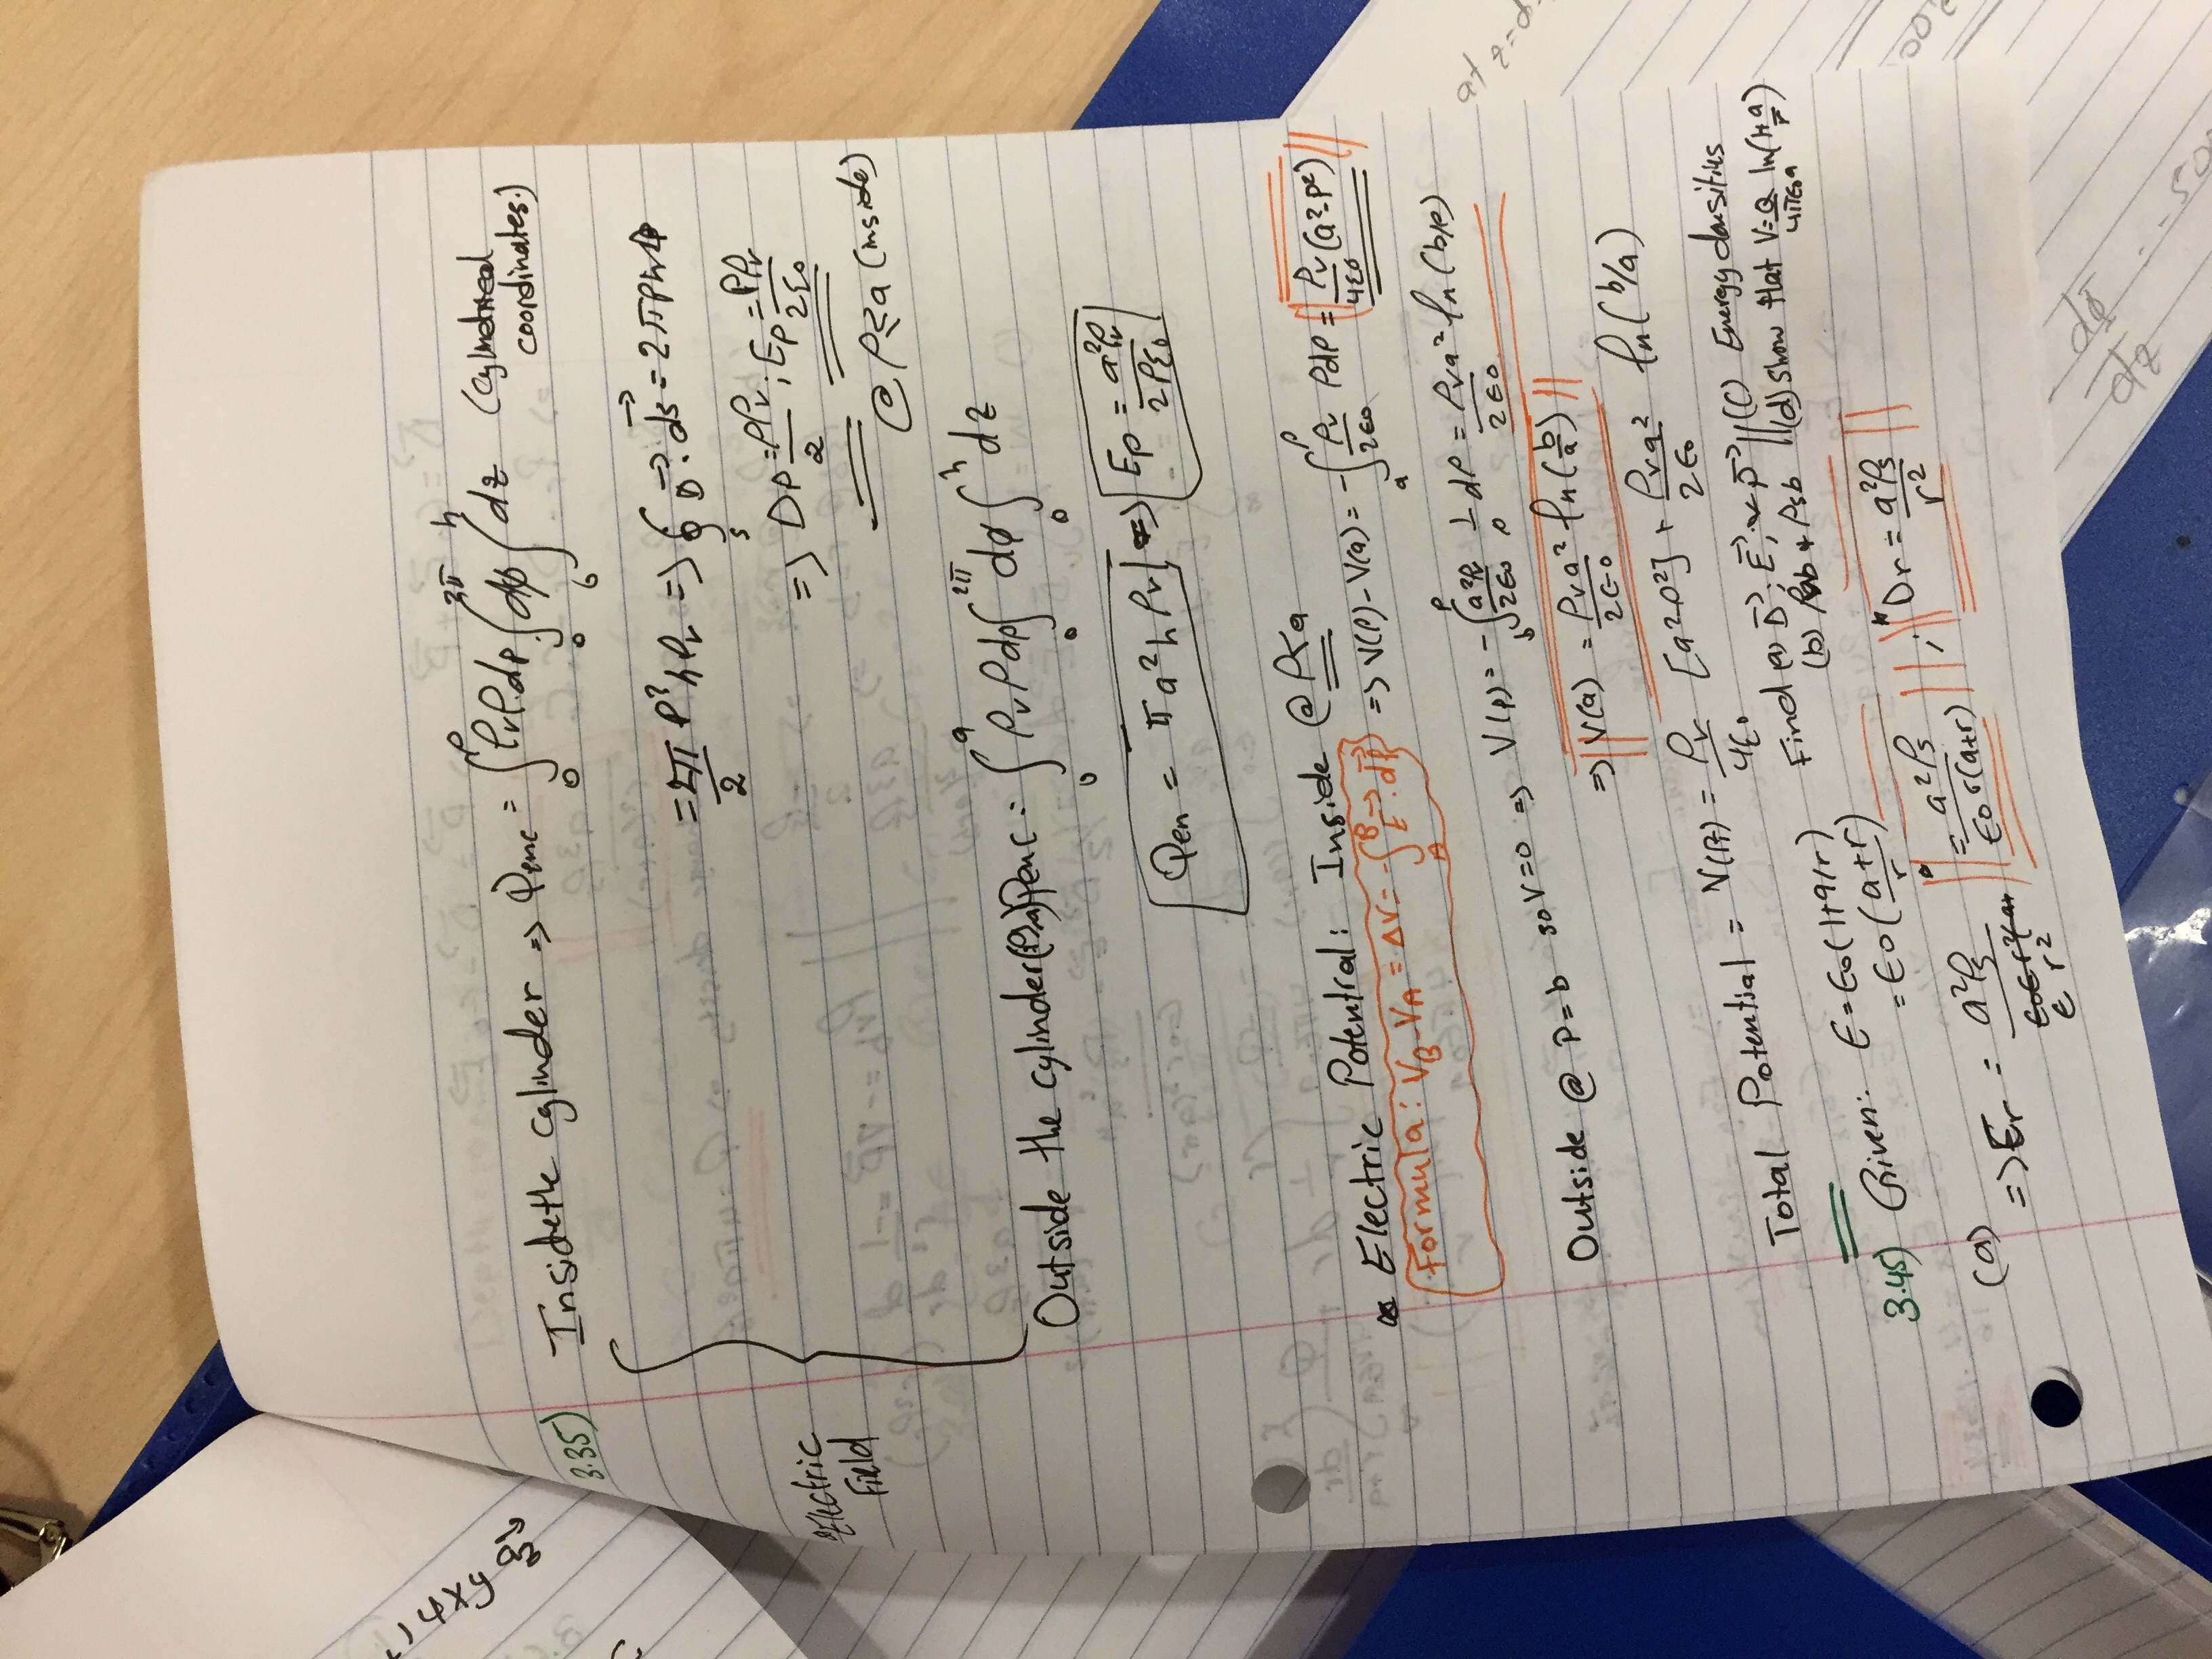 3.35) Inside the cylinder => Qenc = ∫₀^ρ ρᵥρ dρ ∫₀^2π dφ ∫₀^h dz (cylindrical coordinates)
= 2π/2 ρ² h ρᵥ => ∮ₛ D⃗ · ds⃗ = 2πρh
=> Dρ = ρρᵥ/2 ; Eρ = ρρᵥ/2ε₀
Electric Field
@ ρ ≤ a (inside)
Outside the cylinder (ρ>a) Qenc = ∫₀^a ρᵥ ρ dρ ∫₀^2π dφ ∫₀^h dz
Qen = π a² h ρᵥ => Eρ = a²ρᵥ/2ρε₀
Electric Potential: Inside @ ρ<a
Formula: V_B - V_A = ΔV = -∫_A^B E⃗ · dℓ⃗ => V(ρ) - V(a) = -∫ₐ^ρ ρᵥ/2ε₀ ρdρ = ρᵥ/4ε₀ (a²-ρ²)
Outside @ ρ=b so V=0 => V(ρ) = -∫_b^ρ a²ρᵥ/2ε₀ 1/ρ dρ = ρᵥa²/2ε₀ ln(b/ρ)
=> V(a) = ρᵥa²/2ε₀ ln(b/a)
Total Potential = V(A) = ρᵥ/4ε₀ [a²-ρ²] + ρᵥa²/2ε₀ ln(b/a)
3.45) Given: ε = ε₀(1+a/r)
= ε₀(a+r/r)
Find (a) D⃗, E⃗, & P⃗ || (c) Energy densities
(b) ρb & ρsb || (d) Show that V = Q/4πε₀a ln(1+a/r)
(a)
=> Er = a²ρs/ε r² = a²ρs/ε₀r(a+r) ; Dr = a²ρs/r²
14xy
at z=d
dφ/dz